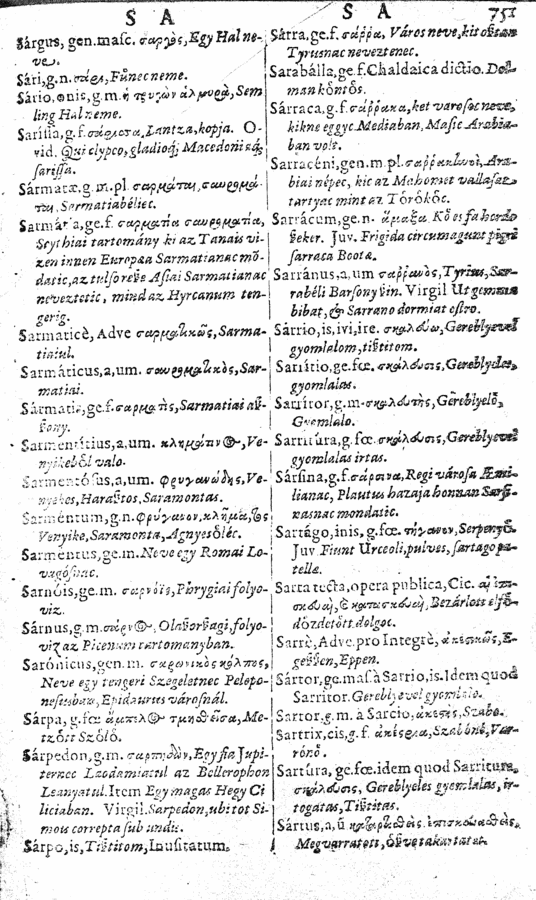 S A
S A 751
Sárgus, gen. masc. σαργὸς, Egy Hal ne-
ve.
Sári, g.n. σάρι, Fűnec neme.
Sário, onis, g.m. Sem
ling Hal neme.
Sarissa, g.f. σάρισσα, Lantza, kopja. O-
vid. Qui clypeo, gladioq; Macedoni áq;
sarissa.
Sármatæ, g.m.pl. σαρμάται, σαυρομά-
ται, Sarmatiabéliec.
Sarmátia, ge.f. σαρματία σαυροματία,
Scythiai tartomány ki az Tanais vi-
zen innen Europæa Sarmatianac mõ-
datic, az tulso resze Asiai Sarmatianac
neveztetic, mind az Hyrcanum ten-
gerig.
Sarmaticè, Adve σαρματικῶς, Sarma-
tiaiul.
Sarmáticus, a, um. σαυρομάτικὸς, Sar-
matiai.
Sármatis, ge.f. σαρματὶς, Sarmatiai asz-
szony.
Sarmentítius, a, um. Ve-
nyikeből valo.
Sarmentósus, a, um. φρυγανώδης, Ve-
nyekes, Harasztos, Saramontas.
Sarméntum, g.n. φρύγανον, κλῆμα, τος
Venyike, Saramonta, Agnyesdléc.
Sarméntus, ge.m. Neve egy Romai Lo-
vagósnac.
Sarnóis, ge.m. σαρνόις, Phrygiai folyo-
viz.
Sárnus, g.m. Olaszorszagi, folyo-
viz az Picenum tartomanyban.
Sarónicus, gen.m. σαρωνικὸς κόλπος,
Neve egy tengeri Szegeletnec Pelopo-
nesusban, Epidaurus városnál.
Sárpa, g.fœ ἄμπελος τμηθεῖσα, Me-
tzőtt Szőlő.
Sárpedon, g.m. σαρπηδὼν, Egy fia Jupi-
ternec Laodamiatul az Bellerophon
Leanyatul. Item Egy magas Hegy Ci
liciaban. Virgil. Sarpedon, ubi tot Si-
mois correpta sub undis.
Sárpo, is, Tisztitom, Inusitatum.
Sárra, ge.f. σάῤῥα, Város neve, kit osztan
Tyrusnac neveztenec.
Sarabálla, ge.f. Chaldaica dictio.
man kőntős.
Sárraca, g.f. σάῤῥακα, ket varosoc neve,
kikne eggyc Mediaban, Masic Arabia-
ban volt.
Sarracéni, gen.m.pl. σαρρακηνοὶ, Ara-
biai népec, kic az Mahomet vallasat
tartyac mint az Tőrőkőc.
Sarrácum, ge.n. ἅμαξα. Kő es fa hordo
szeker. Juv. Frigida circumagunt pigri
sarraca Bootæ.
Sarránus, a, um σαῤῥανὸς, Tyrius, Sar-
rabéli Barsony szin. Virgil Ut gemma
bibat, & Sarrano dormiat ostro.
Sárrio, is, ivi, ire. σκαλεύω, Gereblyevel
gyomlalom, tisztitom.
Sarrítio, ge.fœ. σκάλευσις, Gereblyeles,
gyomlalas.
Sarrítor, g.m. σκαλευτὴς, Gereblyelő,
Gyomlalo.
Sarritúra, g.fœ. σκάλευσις, Gereblyevel
gyomlalas irtas.
Sársina, g.f. σάρσινα, Regi városa Æmi-
lianac, Plautus hazaja honnan Sarsi-
nasnac mondatic.
Sartágo, inis, g.fœ. τήγανον, Serpenyő.
Juv Fiunt Urceoli, pulves, sartago pa-
tellæ.
Sarta tecta, opera publica, Cic.
σκευὴ, Bezárlott es fő-
dőzdetőtt dolgoc.
Sarrè, Adve. pro Integrè, E-
geszszen, Eppen.
Sártor, ge.mas. à Sarrio, is. Idem quod
Sarritor. Gereblyevel gyomlalo.
Sartor, g.m. à Sarcio, ἀκεστὴς, Szabo.
Sartrix, cis, g.f. ἀκέστρια, Szabóné, Var-
róné.
Sartúra, ge.fœ. idem quod Sarritura,
σκάλευσις, Gereblyeles gyemlalas, ir-
togatas, Tisztitas.
Sártus, a, ū
Megvarratott, őszve takartatot.